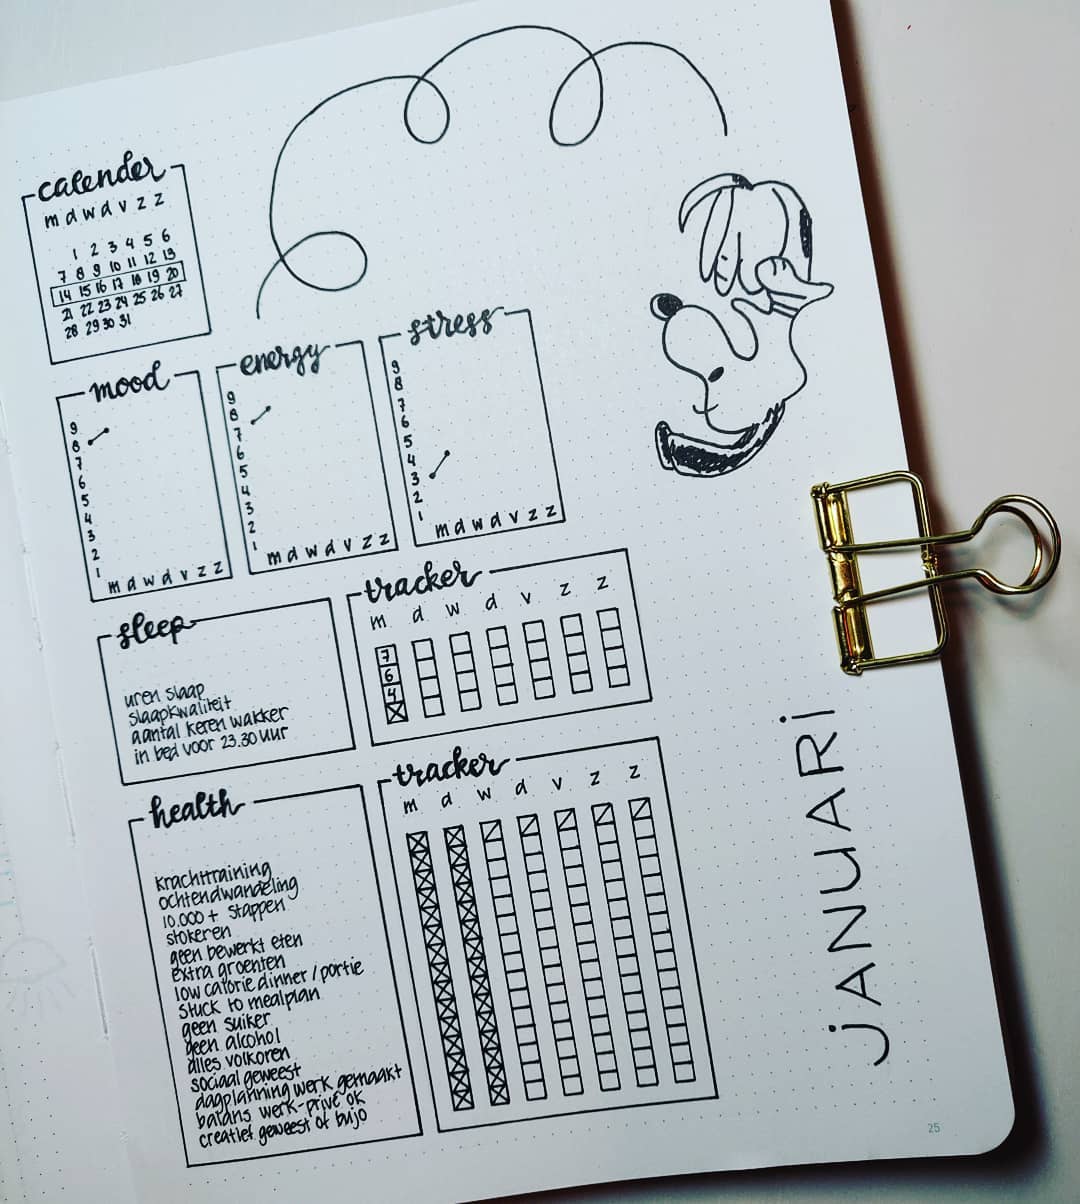 calender
m d w d v z z
1 2 3 4 5 6
7 8 9 10 11 12 13
14 15 16 17 18 19 20
21 22 23 24 25 26 27
28 29 30 31
mood
9
8
7
6
5
4
3
2
1
m d w d v z z
energy
9
8
7
6
5
4
3
2
1
m d w d v z z
stress
9
8
7
6
5
4
3
2
1
m d w d v z z
sleep
uren slaap
slaapkwaliteit
aantal keren wakker
in bed voor 23.30 uur
tracker
m d w d v z z
7
6
4
health
krachttraining
ochtendwandeling
10.000+ stappen
stokeren
geen bewerkt eten
extra groenten
low calorie dinner / portie
stuck to mealplan
geen suiker
geen alcohol
alles volkoren
sociaal geweest
dagplanning werk gemaakt
balans werk-privé ok
creatief geweest of bujo
tracker
m d w d v z z
jANUARi
25